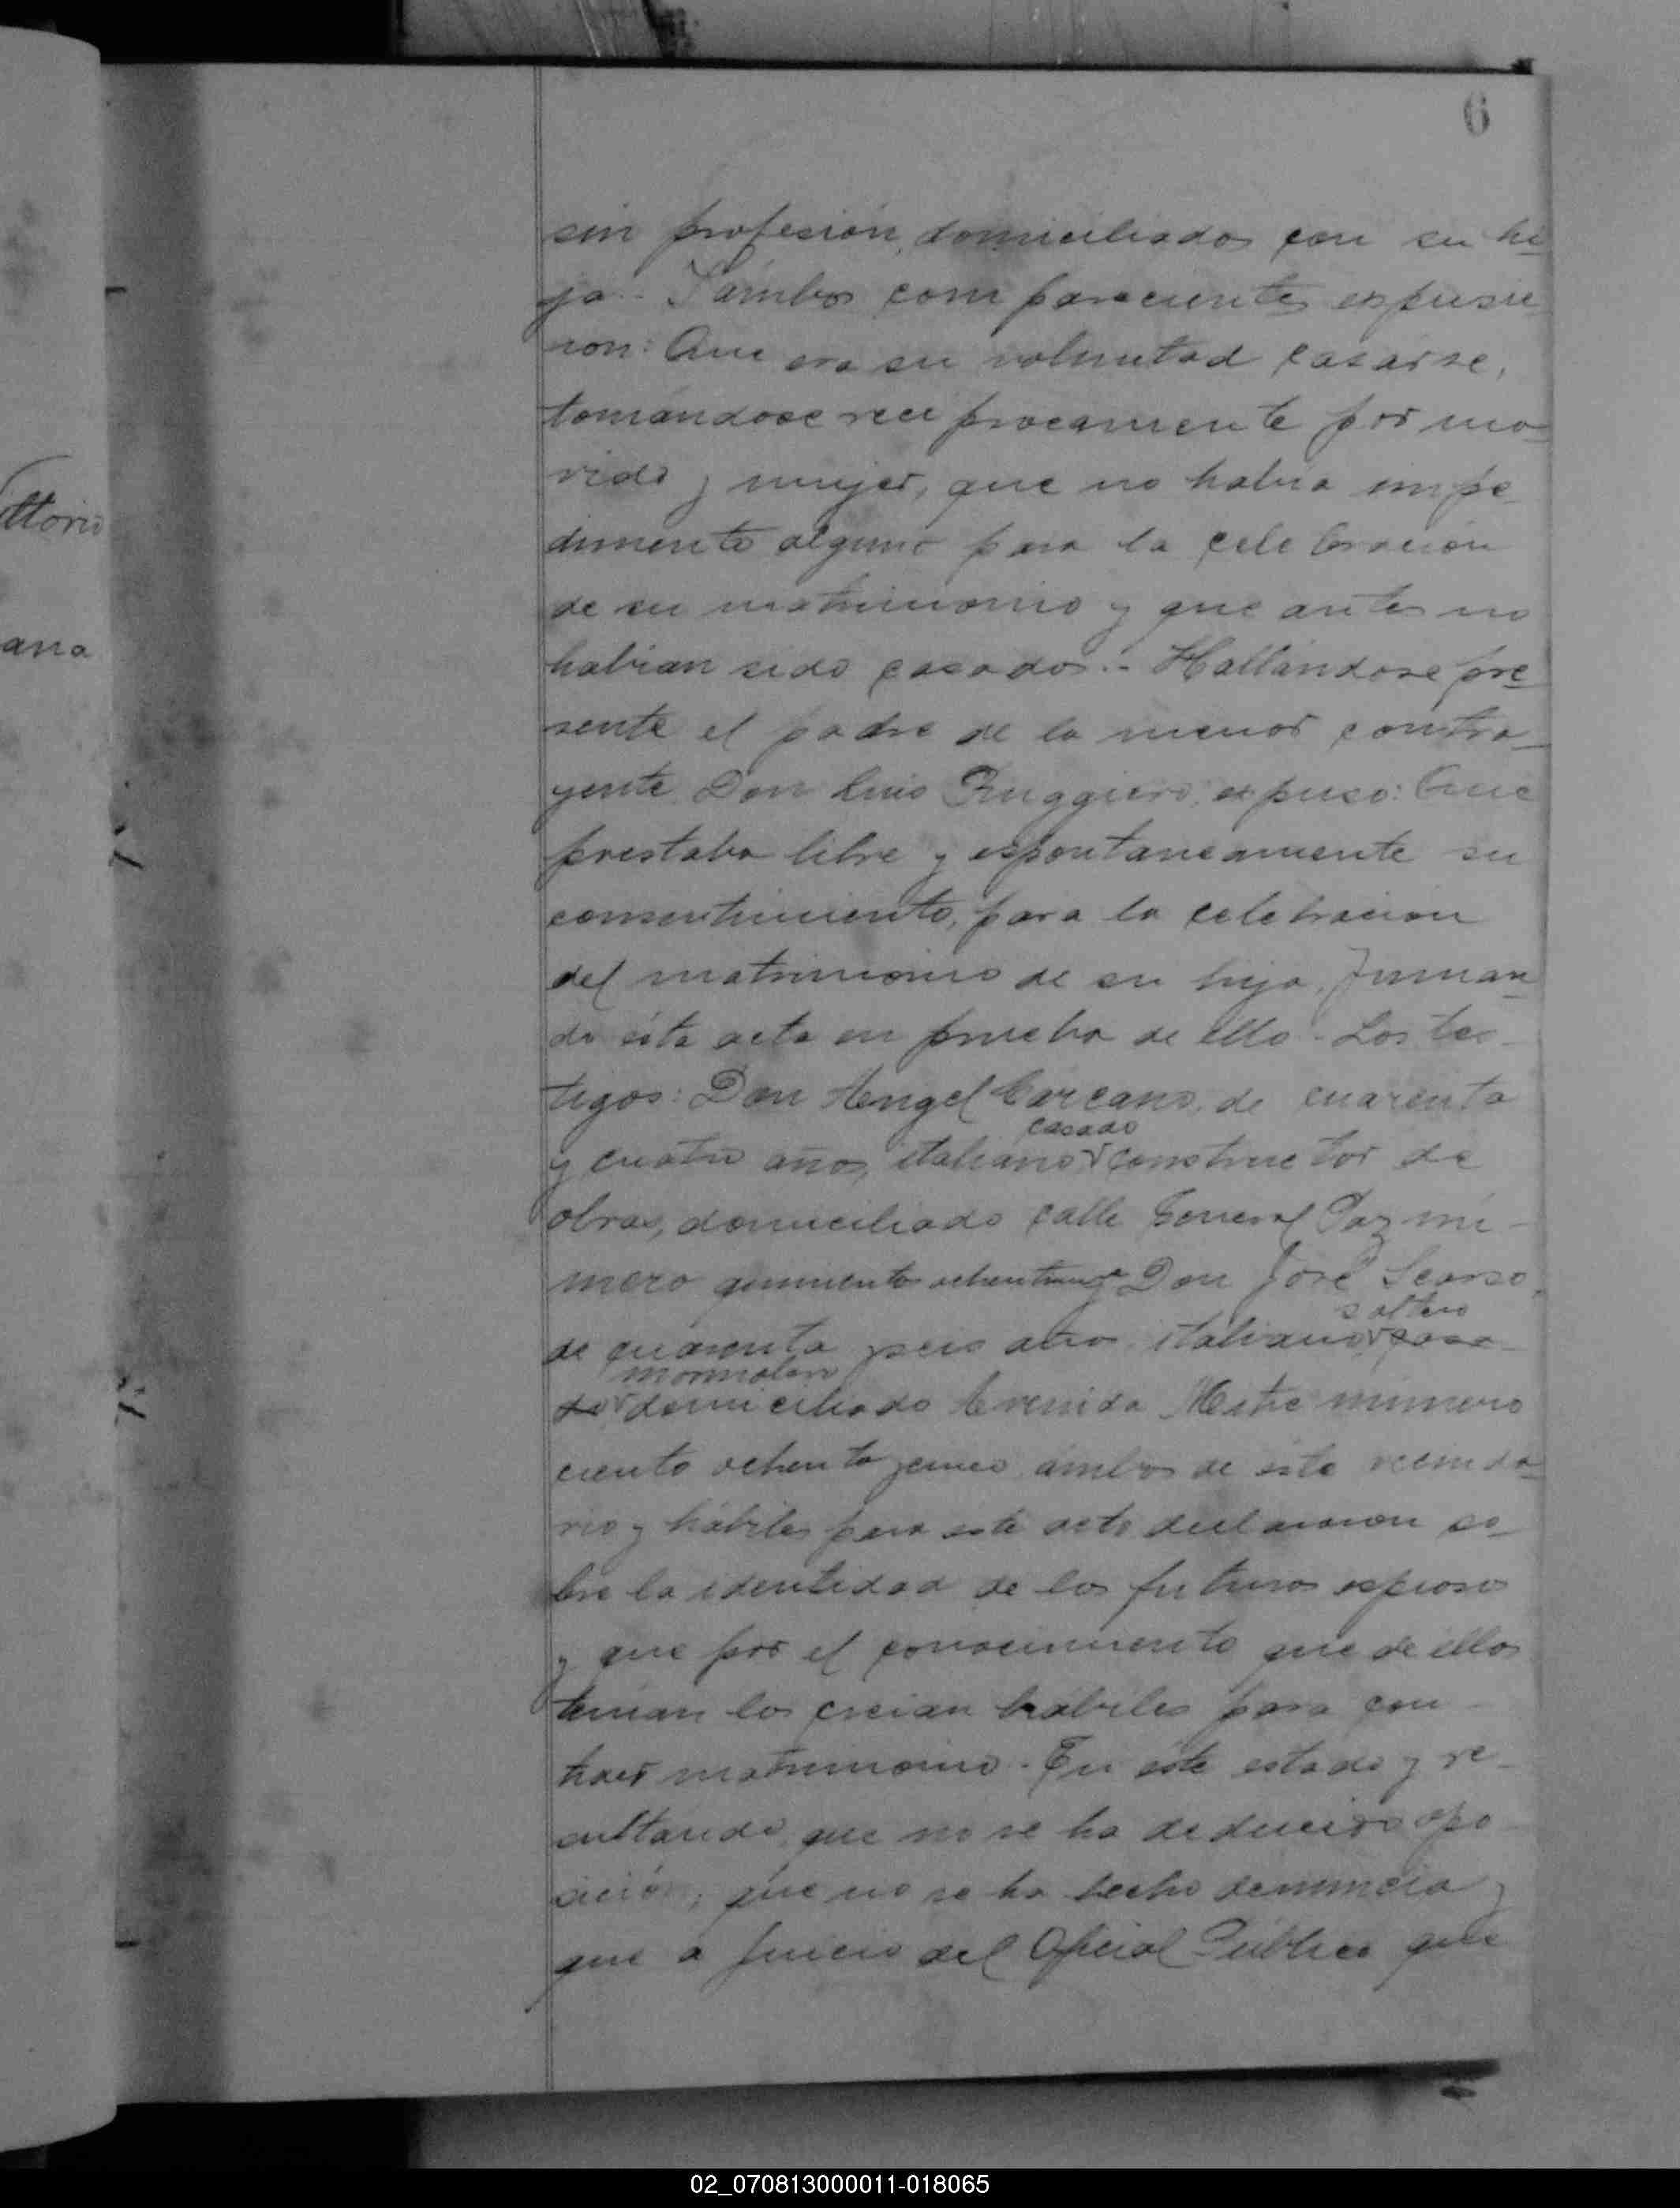 6
sin profesión, domiciliados con su hi
ja.- Y ambos comparecientes expusie
ron: Que era su voluntad casarse,
tomándose reciprocamente por ma-
rido y mujer, que no habia impe
dimento alguno para la celebracion
de su matrimonio y que antes no
habian sido casados.- Hallandose pre
sente el padre de la menor contra-
yente Don Luis Ruggiero, expuso: Que
prestaba libre y espontaneamente su
consentimiento, para la celebracion
del matrimonio de su hija, firman
do ésta acta en prueba de ello - Los tes-
tigos: Don Angel Carcano, de cuarenta
casado
y cuatro años, italiano constructor de
obras, domiciliado calle General Paz nú-
mero quinientos y Don José Scorso,
soltero
de cuarenta y seis años italiano casa-
marmolero
do domiciliado Avenida Mitre número
ciento ochenta y cinco, ambos de este vecinda
rio y hábiles para este acto declararon so-
bre la identidad de los futuros esposos
y que por el conocimiento que de ellos
tenian los creian hábiles para con-
traer matrimonio - En este estado y re-
sultando que no se ha deducido opo
sición, que no se ha hecho denuncia y
que a juicio del Oficial Público que
ttorio
ana
02_070813000011-018065